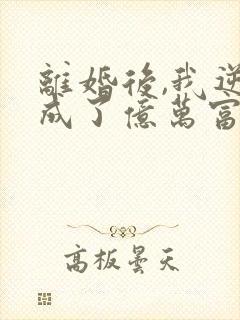 離婚後,我逆
成了億萬富
高板曇天